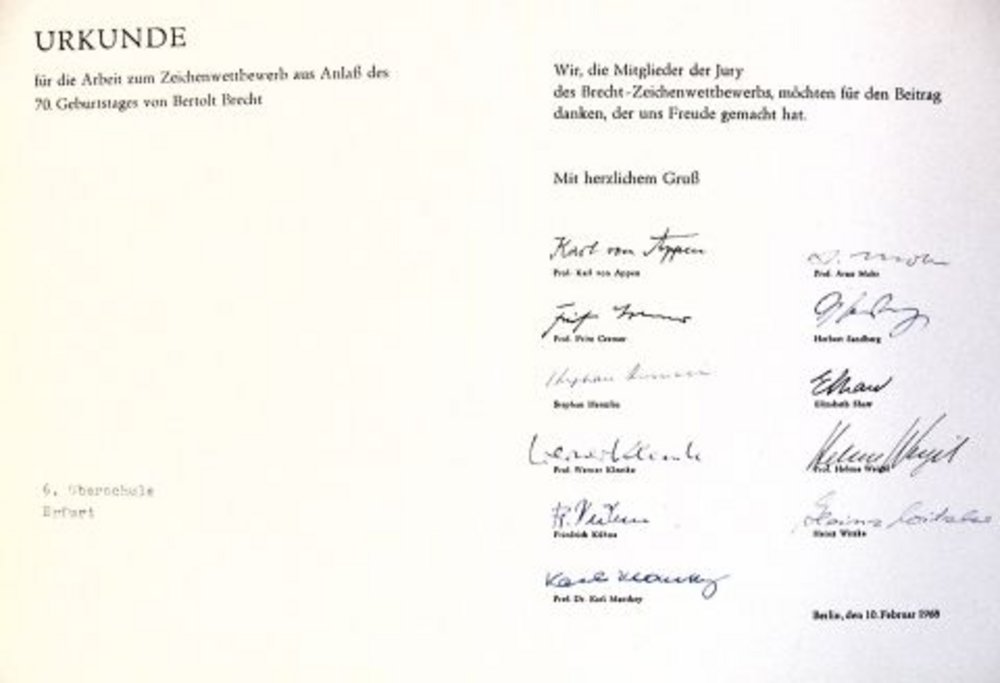 URKUNDE
für die Arbeit zum Zeichenwettbewerb aus Anlaß des
70. Geburtstages von Bertolt Brecht
6. Oberschule
Erfurt
Wir, die Mitglieder der Jury
des Brecht-Zeichenwettbewerbs, möchten für den Beitrag
danken, der uns Freude gemacht hat.
Mit herzlichem Gruß
Karl von Appen
Prof. Karl von Appen
Prof. Arno Mohr
Fritz Cremer
Prof. Fritz Cremer
Herbert Sandberg
Stephan
EShaw
Elizabeth Shaw
Werner Klemke
Prof. Werner Klemke
Helene Weigel
Prof. Helene Weigel
Friedrich
Heinz
Prof. Dr. Karl
Berlin, den 10. Februar 1968